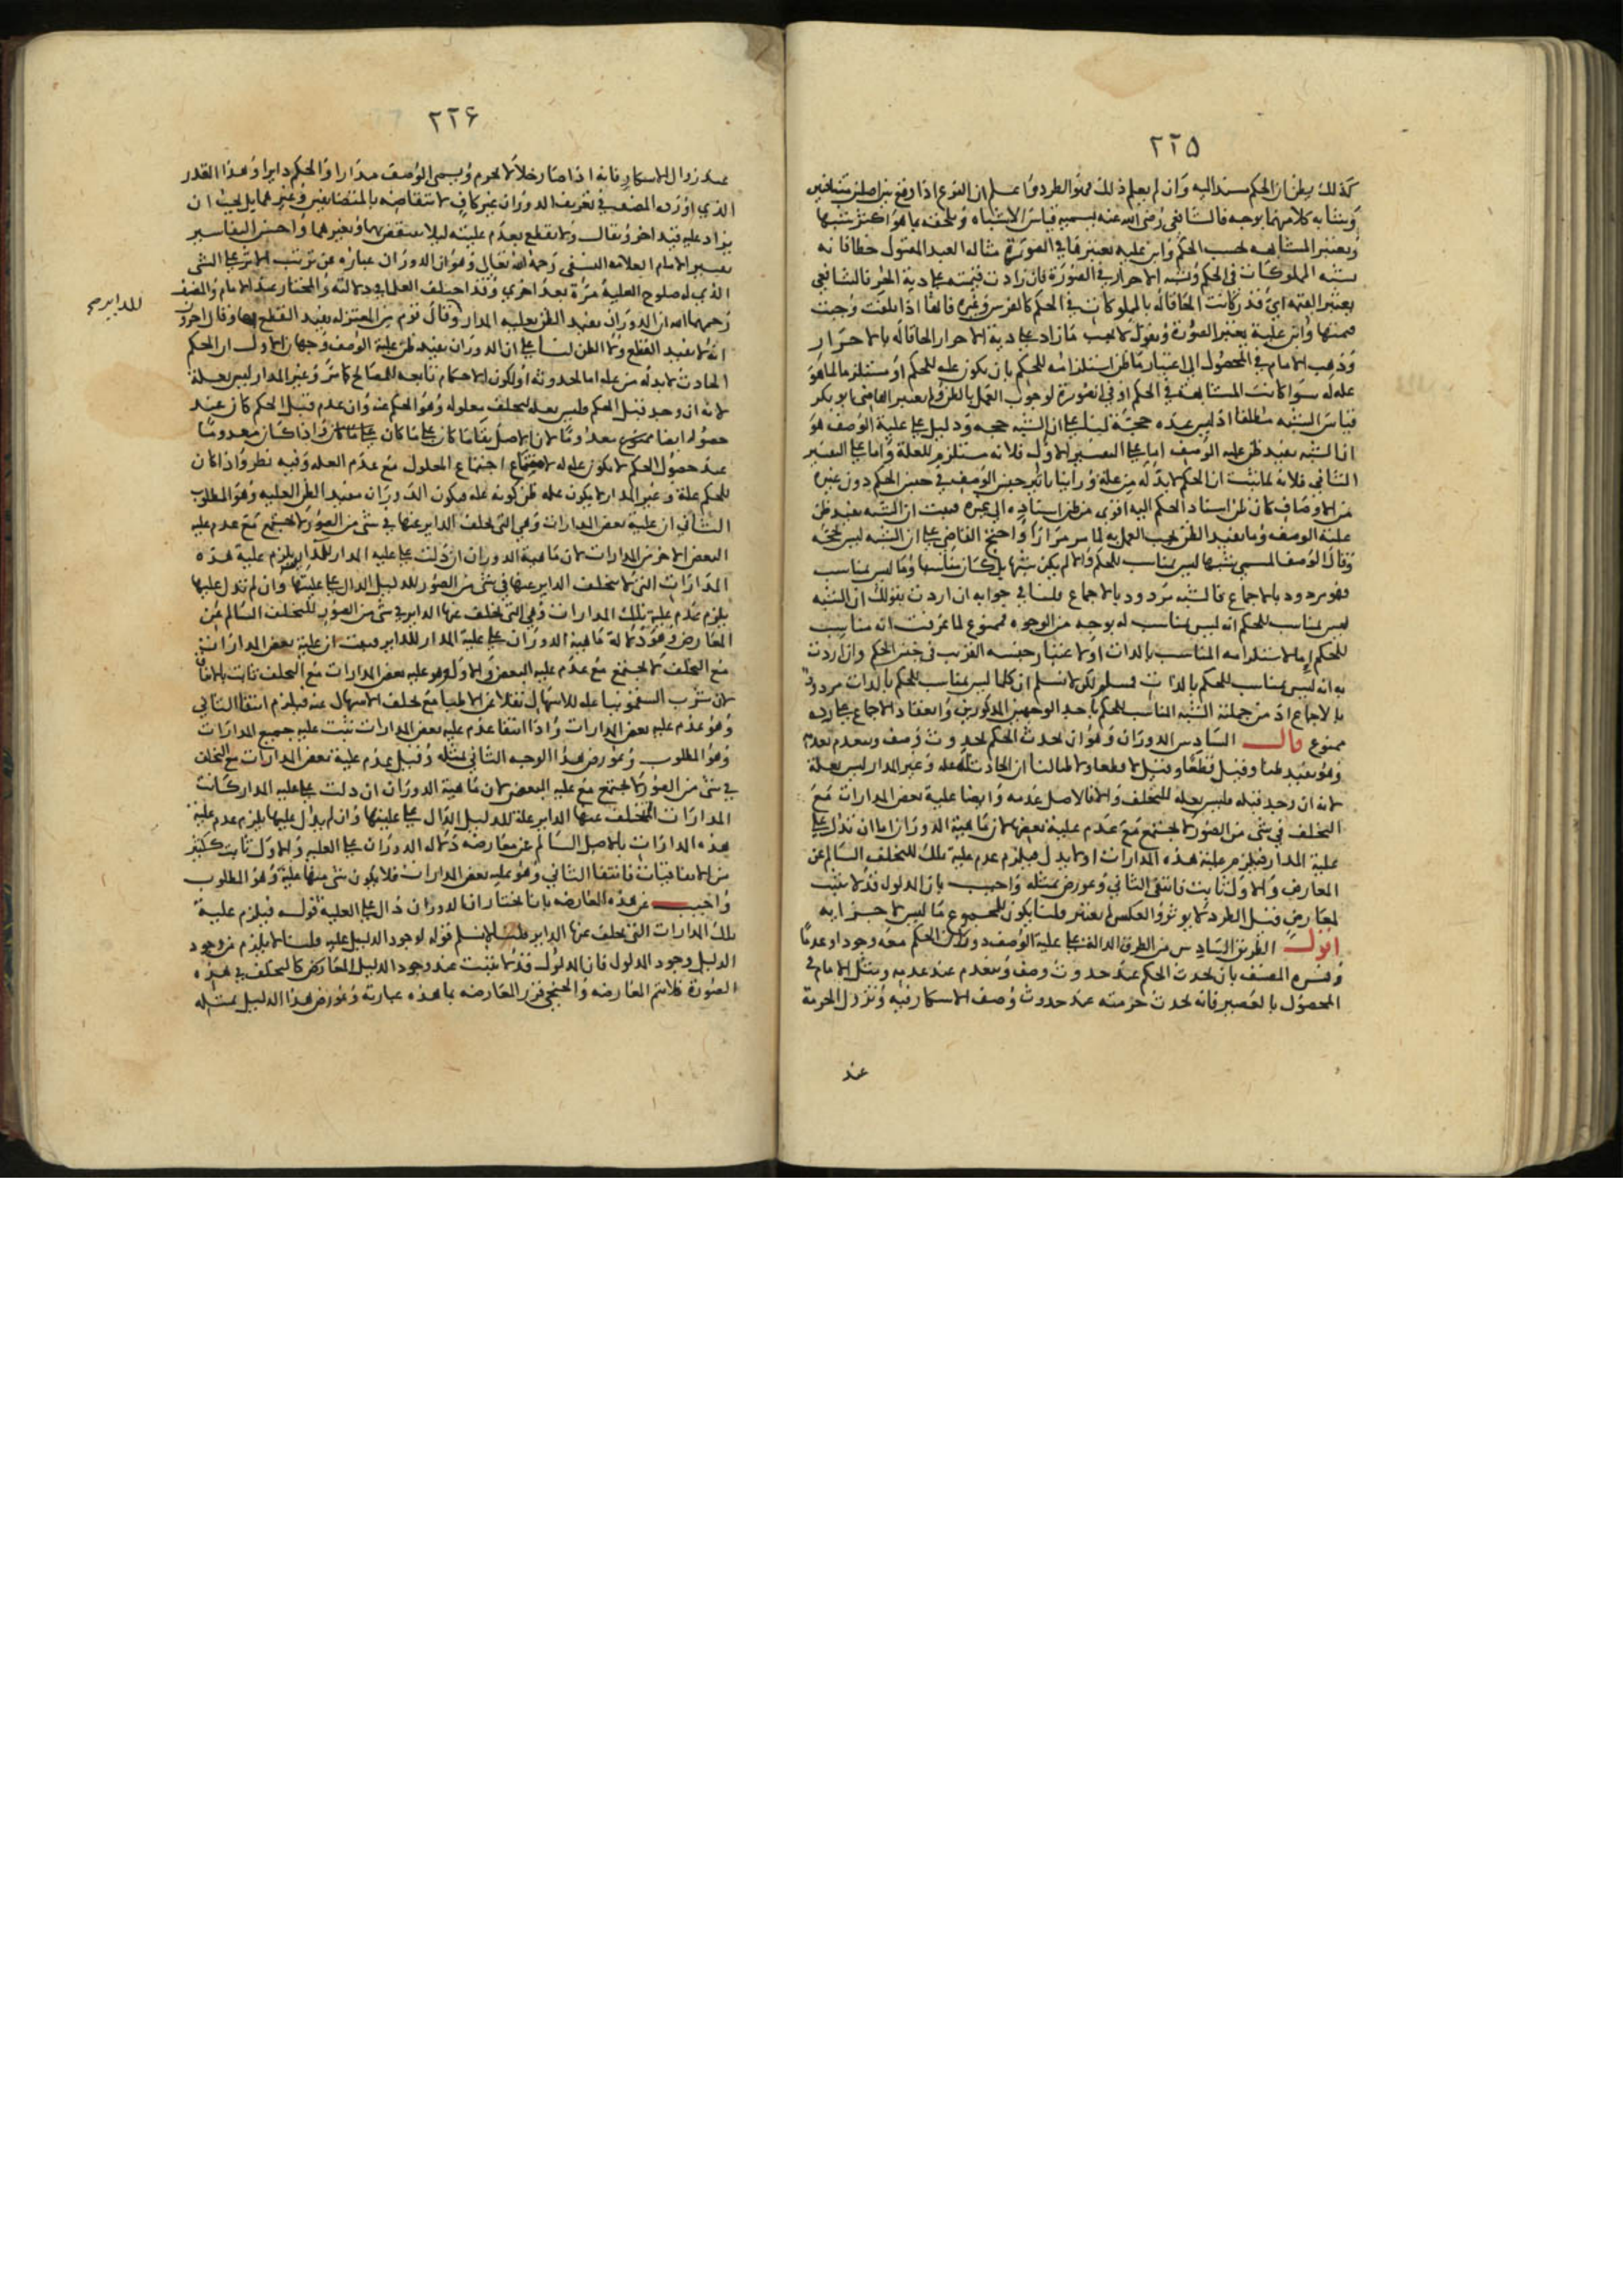 ٢٢٥
كذلك يظن ان الحكم مستندا اليه وان لم يعلم ذلك فهو الطرد واعلم ان الفرع اذا وقع بين اصلين
ويشابه كلا منهما بوجه فالشافعي رضي الله عنه يسميه قياس الاشباه ويلحقه بما هو اكثر شبها
ويعتبر المشابهة بحسب الحكم وابن علية يعتبرها في الصورة مثاله العبد المقتول خطا فانه
يشبه المملوكات في الحكم ويشبه الاحرار في الصورة فان زادت قيمته على دية الحر فالشافعي
يعتبر القيمة اي قدر كانت الحاقا له بالمملوكات في الحكم كالفرس وغيره فانها اذا اتلفت وجبت
قيمتها وابن علية يعتبر الصورة ويقول لا يجب ما زاد على دية الاحرار الحاقا له بالاحرار
وذهب الامام في المحصول الى اعتبار ما ظن استلزامه للحكم بان يكون علة للحكم او مستلزما لما هو
علة له سوا كانت المشابهة في الحكم او في الصورة لوجوب العمل بالظن ولم يعتبر القاضي ابو بكر
قياس الشبه مطلقا اذ ليس عنده حجة لنا على ان الشبه حجة ودليل على علية الوصف هو
ان الشبه يفيد ظن علية الوصف اما على التفسير الاول فلانه مستلزم للعلة واما على التفسير
الثاني فلانه لما ثبت ان الحكم لا بد له من علة وراينا تاثير جنس الوصف في جنس الحكم دون غيره
من الاوصاف كان ظن اسناد الحكم اليه اقوى من ظن اسناده الى غيره فثبت ان الشبه يفيد ظن
علية الوصف وما يفيد الظن يجب العمل به لما مر مرارا واحتج القاضي على ان الشبه ليس بحجة
وقال الوصف المسمى شبها ليس بمناسب للحكم والا لم يكن شبها بل كان مناسبا وما ليس بمناسب
فهو مردود بالاجماع فالشبه مردود بالاجماع قلنا في جوابه ان اردت بقولك ان الشبه
ليس بمناسب للحكم انه ليس بمناسب له بوجه من الوجوه فممنوع لما عرفت انه مناسب
للحكم اما لاستلزامه المناسب بالذات او لاعتبار جنسه القريب في جنس الحكم وان اردت
به انه ليس بمناسب للحكم بالذات فمسلم لكن لا نسلم ان كلما ليس بمناسب للحكم بالذات مردود
بالاجماع اذ من جملته الشبه المناسب للحكم باحد الوجهين المذكورين وانعقاد الاجماع على رده
ممنوع قال السادس الدوران وهو ان يحدث الحكم بحدوث وصف وينعدم بعدمه
وهو يفيد ظنا وقيل قطعا وقيل لا قطعا ولا ظنا لنا ان الحادث له علة وغير المدار ليس بعلة
لانه ان وجد قبله فليس بعلة للتخلف والا فالاصل عدمه وايضا علية بعض المدارات مع
التخلف في شي من الصور لا يجتمع مع عدم علية بعضها لان ماهية الدوران اما ان تدل على
علية المدار فيلزم علية هذه المدارات او لا يدل فيلزم عدم علية تلك للتخلف السالم عن
المعارض والاول ثابت فانتفى الثاني وعورض بمثله واجيب بان المدلول قد لا يثبت
لمعارض قيل الطرد لا يوثر والعكس لم يعتبر قلنا يكون للمجموع ما ليس لاجزايه
اقول الطريق السادس من الطرق الدالة على علية الوصف دوران الحكم معه وجودا وعدما
وفسره المصنف بان يحدث الحكم عند حدوث وصف وينعدم عند عدمه ومثل الامام في
المحصول بالعصير فانه يحدث حرمته عند حدوث وصف الاسكار فيه وتزول الحرمة
عند
٢٢٦
عند زوال الاسكار فانه اذا صار خلا لا يحرم ويسمى الوصف مدارا والحكم دايرا وهذا القدر
الذي اورده المصنف في تعريف الدوران غير كاف لانتقاضه بالمتضايفين وغيرهما بل يجب ان
يزاد عليه قيد اخر ويقال ولا يقطع بعدم عليته ليلا ينتقض بهما وبغيرهما واحسن التفاسير
تفسير الامام العلامة النسفي رحمه الله تعالى وهو ان الدوران عبارة عن ترتب الاثر على الشي
الذي له صلوح العلية مرة بعد اخرى وقد اختلف العلما في دلالته والمختار عند الامام والمصنف
رحمهما الله ان الدوران يفيد الظن بعلية المدار وقال قوم من المعتزلة يفيد القطع بها وقال اخرون
انه لا يفيد القطع ولا الظن لنا على ان الدوران يفيد ظن علية الوصف وجهان الاول ان الحكم
الحادث لا بد له من علة اما لحدوثه او لكون الاحكام تابعة للمصالح كما مر وغير المدار ليس بعلة
لانه ان وجد قبل الحكم فليس بعلة لتخلف معلوله وهو الحكم عنه وان عدم قبل الحكم كان عند
حصوله ايضا معدوما لان الاصل بقا ما كان على ما كان واذا كان معدوما
عند حصول الحكم لا يكون علة له لامتناع اجتماع المعلول مع عدم العلة وفيه نظر واذا كان
للحكم علة وغير المدار لا يكون علة ظن كونه علة فيكون الدوران مفيد الظن العلية وهو المطلوب
الثاني ان علية بعض المدارات وهي التي يتخلف الداير عنها في شي من الصور لا يجتمع مع عدم علية
البعض الاخر من المدارات لان ماهية الدوران ان دلت على علية المدار للداير يلزم علية هذه
المدارات التي لا يتخلف الداير عنها في شي من الصور للدليل الدال على عليتها وان لم تدل عليها
يلزم عدم علية تلك المدارات وهي التي يتخلف عنها الداير في شي من الصور للتخلف السالم عن
المعارض وهو دلالة ماهية الدوران على علية المدار للداير فثبت ان علية بعض المدارات
مع التخلف لا يجتمع مع عدم علية البعض والاول وهو علية بعض المدارات مع التخلف ثابت بالاتفاق
لان شرب السقمونيا علة للاسهال نقلا عن الاطبا مع تخلف الاسهال عنه فيلزم انتفا الثاني
وهو عدم علية بعض المدارات واذا انتفا عدم علية بعض المدارات ثبت علية جميع المدارات
وهو المطلوب وعورض هذا الوجه الثاني بمثله وقيل عدم علية بعض المدارات مع التخلف
في شي من الصور لا يجتمع مع علية البعض لان ماهية الدوران ان دلت على علية المدار كانت
المدارات المتخلف عنها الداير علة للدليل الدال على عليتها وان لم يدل عليها يلزم عدم علية
هذه المدارات بالاصل السالم عن معارضه دلالة الدوران على العلية والاول ثابت كثير
من الاتفاقيات فانتفا الثاني وهو علية بعض المدارات فلا يكون شي منها علية وهو المطلوب
واجيب عن هذه المعارضة بانا نختار ان الدوران دال على العلية قوله فيلزم علية
تلك المدارات التي يتخلف عنها الداير قلنا لا نسلم قوله لوجود الدليل عليه قلنا لا يلزم من وجود
الدليل وجود المدلول فان المدلول قد لا يثبت عند وجود الدليل لمعارض كالتخلف في هذه
الصورة فلا تتم المعارضة والخنجي قرر المعارضة بما هذه عبارته وعورض هذا الدليل بمثله
للداير صح